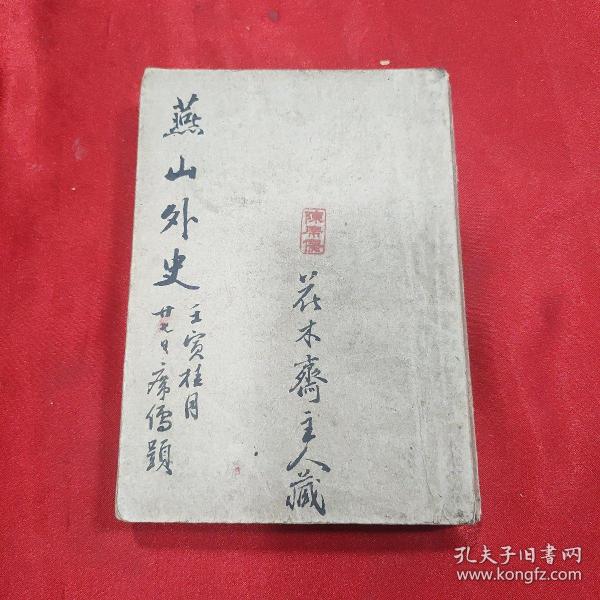 花木齋主人藏
燕山外史
壬寅桂月
廿九日席儒題
孔夫子旧书网
www.kongfz.com